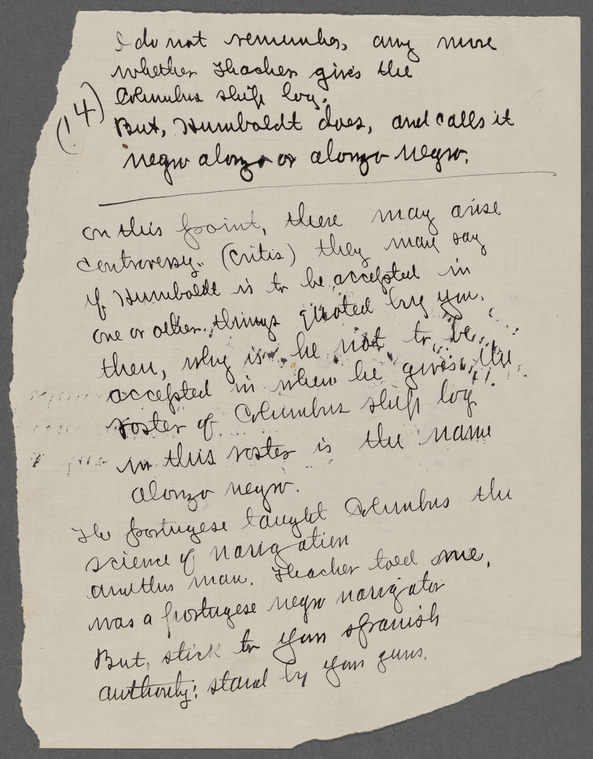 I do not remember, any more
whether Thacher gives the
Columbus ship log.
(14)
But, Humboldt does, and calls it
negro alonzo or alonzo negro.
on this point, there may arise
controversy. (critis) they may say
if Humboldt is to be accepted in
one or other things quoted by you.
then, why is he not to be
accepted in when he gives the
roster of Columbus ship log
in this roster is the name
alonzo negro.
The portugese taught Columbus the
science of navigation
and this man. Thacher told me,
was a portugese negro navigator
But, stick to your spanish
authority; stand by your guns.